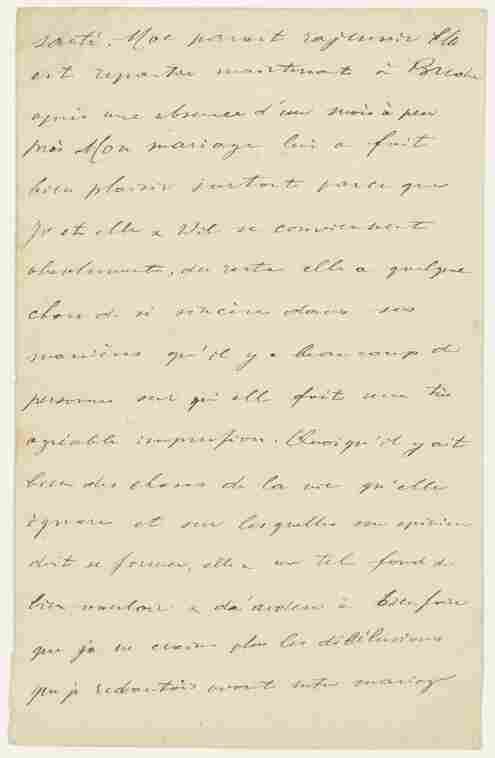 santé. Moe parait rajeunir Elle
est repartie maintenant à Breda
après une absence d'un mois à peu
près Mon mariage lui a fait
bien plaisir surtout parce que
Jo et elle & Wil se conviennent
absolument, du reste elle a quelque
chose de si sincère dans ses
manières qu'il y a beaucoup de
personnes sur qui elle fait une très
agréable impression. Quoiqu'il y ait
bien des choses de la vie qu'elle
ignore et sur lesquelles son opinion
doit se former, elle a un tel fond de
bien vouloir & d'ardeur à bien faire
que je ne crains plus les désillusions
que je redoutais avant notre mariage